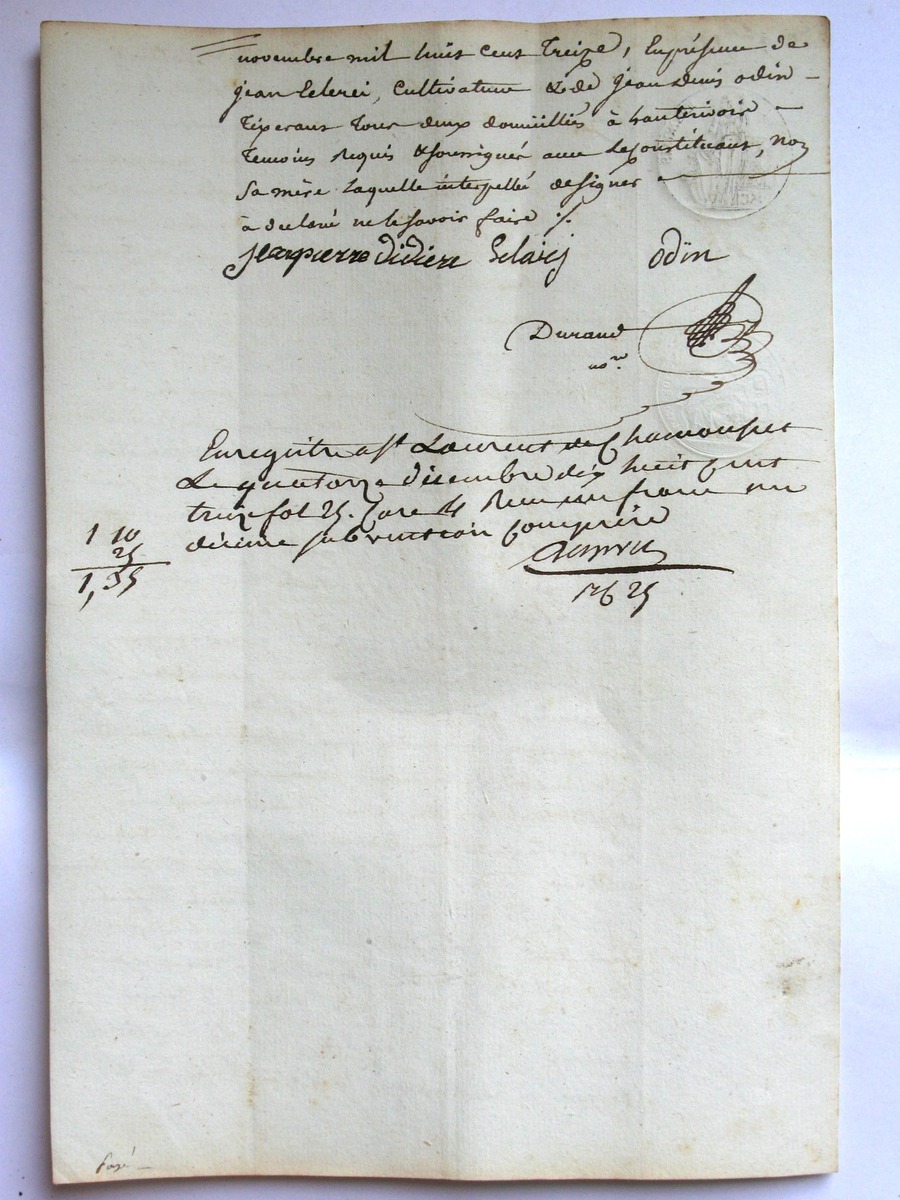 novembre mil huit cent treize, En présence de
jean Eclerci, Cultivateur & de jean denis odin
Tisserans tous deux domiciliés à hauterivoir
Temoins Requis & soussignés avec le constituant, non
Sa mère laquelle interpellée de signer
à declaré ne le savoir faire ./.
jeanpierre didiere Eclaircj odin
Durand
nore.
Enregistré a St Laurent de Chamousset
Le quatorze décembre dix huit cent
treize fol 25. Case 4 Reçu un franc un
décime subvention Comprise
1 10
25
1,35
25